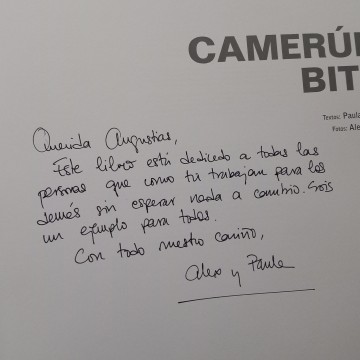 CAMERÚ
BIT
Textos: Paula
Fotos: Ale
Querida Augustias,
Este libro está dedicado a todas las
personas que como tú trabajan para los
demás sin esperar nada a cambio. Sois
un ejemplo para todos.
Con todo nuestro cariño,
Alex y Paula